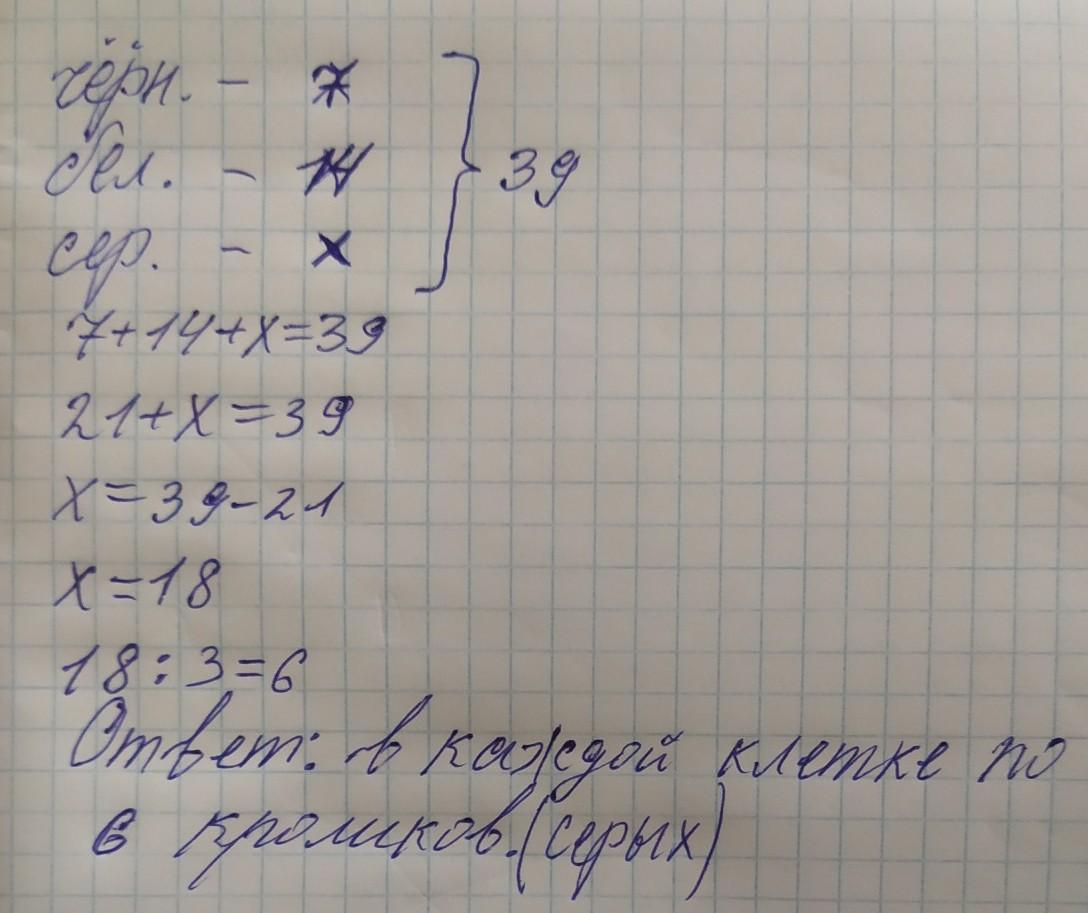 чёрн. - 7
бел. - 14 } 39
сер. - x
7+14+x=39
21+x=39
x=39-21
x=18
18:3=6
Ответ: в каждой клетке по
6 кроликов. (серых)